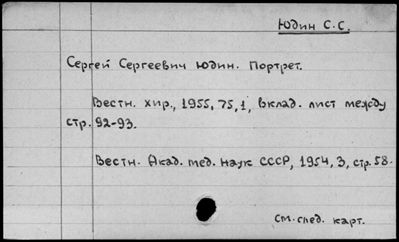 Юдин С.С.
Сергей Сергеевич Юдин. Портрет.
Вестн. хир., 1955, 75, 1, вклад. лист между
стр. 92-93.
Вестн. Акад. мед. наук СССР, 1954, 3, стр. 58.
См. след. карт.